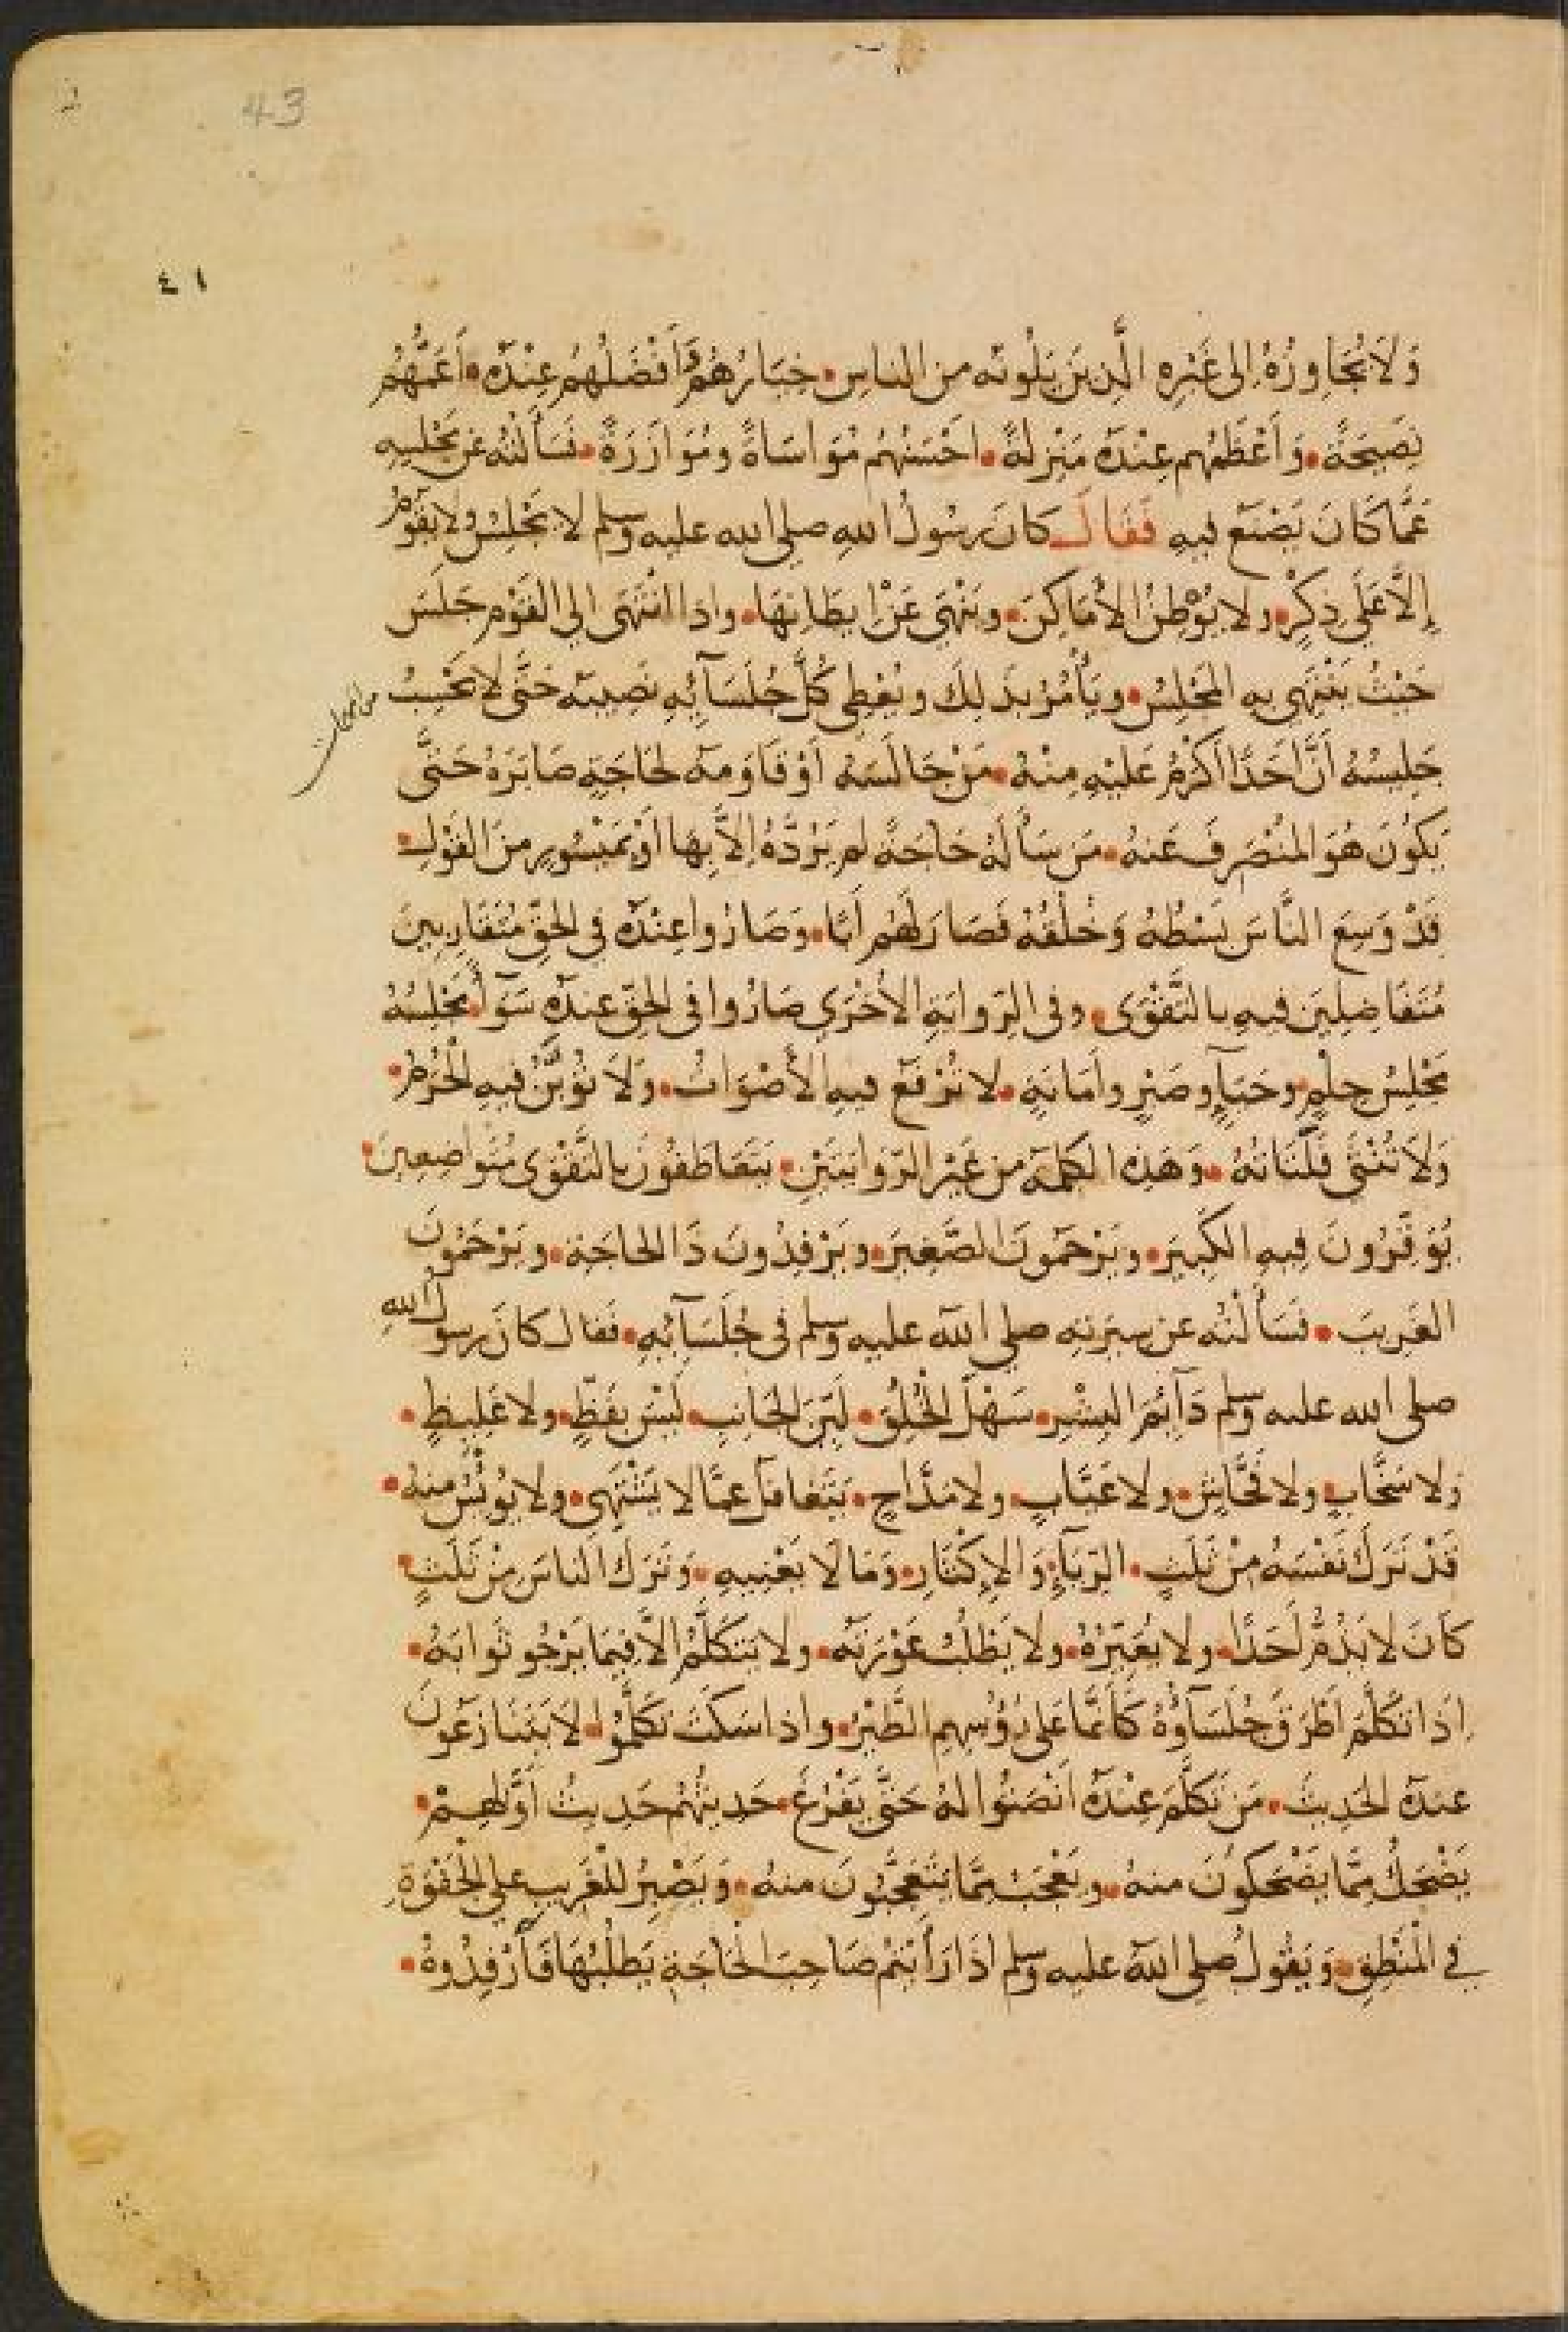 43
٤١
وَلَا يُجَاوِزُهُ إِلى غَيْرِهِ الَّذِينَ يَلُونَه من الناسِ • خِيَارُهُمْ وَأَفْضَلُهُم عِنْدَهُ • أَعَمُّهُمْ
نَصِيحَةً • وَأَعْظَمُهم عِنْدَهُ مَنْزِلَةً • احْسَنُهُم مُوَاسَاةً ومُوَازَرَةً • فَسَأَلْتُه عَن مَجْلِسِهِ
عَمَّا كَانَ يَصْنَع فيهِ فَقَالَ كَانَ رسُولُ اللهِ صلى الله عليه وسلم لا يَجْلِسُ ولا يَقُومُ
إِلَّا عَلَى ذِكْرٍ • ولا يُوْطِنُ الأَمَاكِنَ • ويَنْهَى عَنْ ايطَانِهَا • واذا انْتَهَى الى القَوْمِ جَلَسَ
حَيْثُ يَنْتَهِى بِهِ المَجْلِسُ • ويَأْمُرُ بِذَلِكَ ويُعْطِى كُلَّ جُلَسَآئِهِ نَصِيبَه حَتَّى لا يَحْسِبُ
جَلِيسُهُ أَنَّ احَدًا أَكْرَمُ عَلَيْهِ مِنْهُ • مَنْ جَالَسَهُ أَوْ قَاوَمَهُ لِحَاجَةٍ صَابَرَهُ حَتَّى
يَكُونَ هُوَ المُنْصَرِفَ عَنهُ • مَن سَأَلَهُ حَاجَةً لم يَرُدَّهُ إِلَّا بِهَا أَوْ بمَيْسُورٍ مِنَ القَوْلِ •
قَدْ وَسِعَ النَّاسَ بَسْطُهُ وَخُلُقُهُ فَصَارَ لَهُم أَبًا • وَصَارُوا عِنْدَهُ فى الحَقِّ مُتَقَارِبينَ
مُتَفَاضِلِينَ فيهِ بِالتَّقْوَى • وفى الرِّوايَةِ الأُخْرَى صَارُوا فى الحَقِّ عندَهُ سَوَآءً • مَجْلِسُهُ
مَجْلِسُ حِلْمٍ • وحَيَآءٍ وصَبْرٍ وأَمَانَةٍ • لا تُرْفَعُ فيهِ الأَصْوَاتُ • وَلَا تُؤْبَنُ فيهِ الْحُرَمُ •
وَلَا تُنْثَى فَلَتَاتُهُ • وَهَذِه الكلِمَة من غَيْرِ الرِّوَايَتَيْنِ • يَتَعَاطَفُونَ بالتَّقْوَى مُتَواضِعِينَ •
يُوَقِّرُونَ فِيهِ الكَبِيرَ • ويَرْحَمُونَ الصَّغِيرَ • ويَرْفِدُونَ ذَا الحاجَةِ • ويَرْحَمُونَ
الغَرِيبَ • فَسَأَلْتُه عن سِيرَتِهِ صلى الله عليه وسلم فى جُلَسَآئِهِ • فَقال كانَ رسولُ اللهِ
صلى الله عليه وسلم دَآئِمَ البِشْرِ • سَهْلَ الْخُلُقِ • لَيِّنَ الجَانِبِ • لَيْسَ بِفَظٍّ • ولا غَلِيظٍ •
ولا سَخَّابٍ ولا فَحَّاشٍ • ولا عَيَّابٍ • ولا مَدَّاحٍ • يَتَغافَلُ عمَّا لا يَشْتَهِى • ولا يُوْئِسُ منهُ •
قَدْ تَرَكَ نَفْسَهُ مِنْ ثَلَثٍ • الرِّيَآءِ • وَالإكْثَارِ • وَمَا لَا يَعْنِيهِ • وَتَرَكَ الناسَ مِنْ ثَلَثٍ •
كَانَ لا يَذُمُّ أَحَدًا • ولا يُعَيِّرُهُ • ولا يَطْلُبُ عَوْرَتَه • ولا يَتَكَلَّمُ الَّا فِيمَا يَرْجُو ثَوَابَهُ •
اذَا تكلَّمَ اطْرَقَ جُلَسَاؤُهُ كَأَنَّمَا عَلَى رُؤُسِهِمِ الطَّيْرُ • واذا سَكَتَ تَكَلَّمُوا • لَا يَتَنَازَعونَ
عندَهُ الحَدِيثَ • مَن تكلَّمَ عِنْدَهُ انْصَتُوا لهُ حَتَّى يَفْرُغَ • حَدِيثُهُمْ حَدِيثُ أَوَّلهِمْ •
يَضْحَكُ مِمَّا يَضْحَكُونَ منهُ • ويَعْجَبُ مِمَّا يَتَعَجَّبُونَ منه • وَيَصْبِرُ للْغَرِيبِ على الْجَفْوَةِ
فى الْمَنْطِقِ • وَيَقُولُ صلى الله عليه وسلم اذَا رَأَيْتُمْ صَاحِبَ الْحَاجَةِ يَطْلُبُهَا فَأَرْفِدُوهُ •